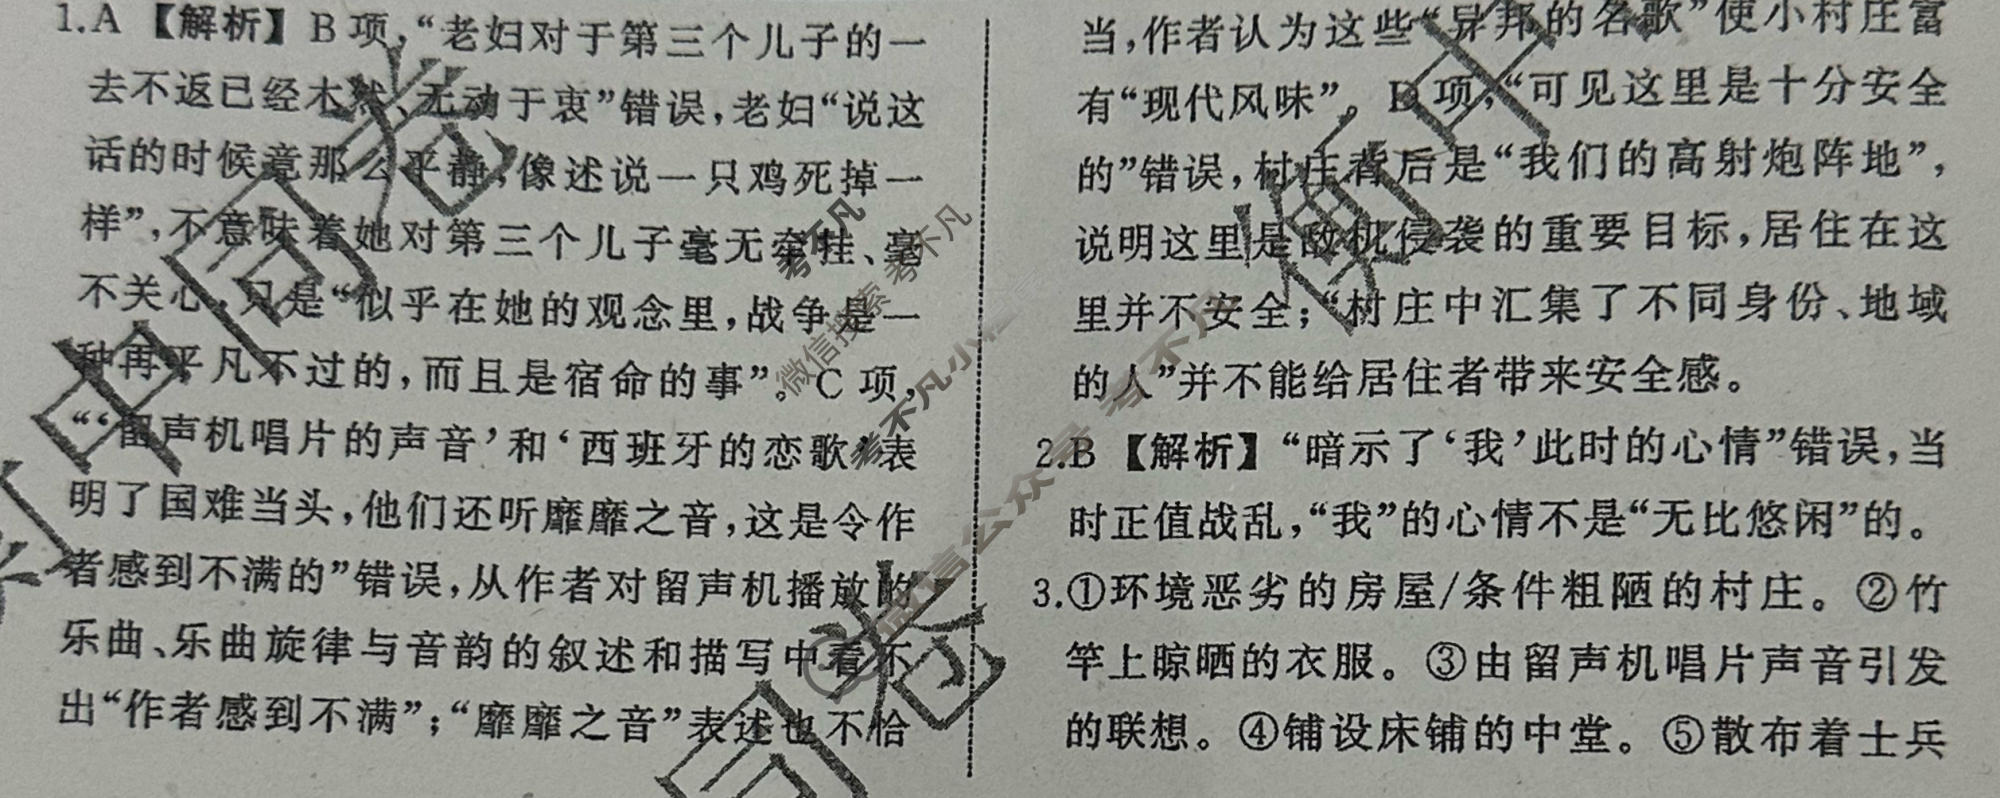 1.A 【解析】B项,“老妇对于第三个儿子的一
去不返已经木然、无动于衷”错误,老妇“说这
话的时候竟那么平静,像述说一只鸡死掉一
样”,不意味着她对第三个儿子毫无牵挂、毫
不关心,只是“似乎在她的观念里,战争是一
种再平凡不过的,而且是宿命的事”。C项,
“‘留声机唱片的声音’和‘西班牙的恋歌’表
明了国难当头,他们还听靡靡之音,这是令作
者感到不满的”错误,从作者对留声机播放的
乐曲、乐曲旋律与音韵的叙述和描写中看不
出“作者感到不满”;“靡靡之音”表述也不恰
当,作者认为这些“异邦的名歌”使小村庄富
有“现代风味”。D项,“可见这里是十分安全
的”错误,村庄背后是“我们的高射炮阵地”,
说明这里是敌机侵袭的重要目标,居住在这
里并不安全;“村庄中汇集了不同身份、地域
的人”并不能给居住者带来安全感。
2.B 【解析】“暗示了‘我’此时的心情”错误,当
时正值战乱,“我”的心情不是“无比悠闲”的。
3.①环境恶劣的房屋/条件粗陋的村庄。②竹
竿上晾晒的衣服。③由留声机唱片声音引发
的联想。④铺设床铺的中堂。⑤散布着士兵
考不凡
微信搜索 考不凡
微信公众号 考不凡